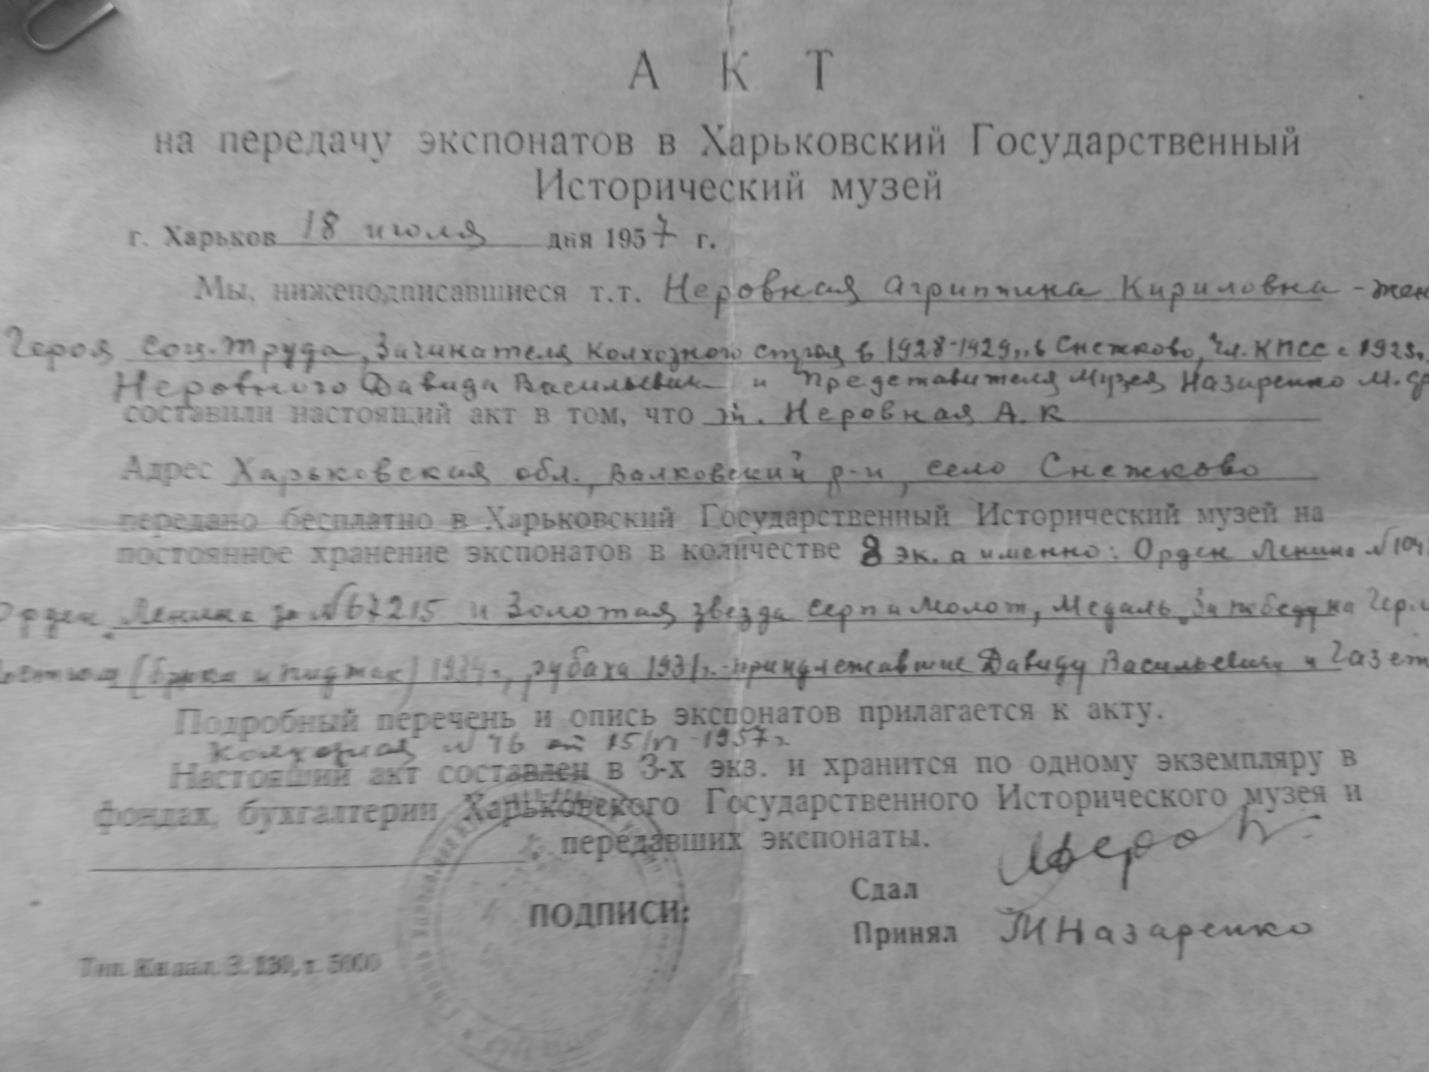 АКТ
на передачу экспонатов в Харьковский Государственный
Исторический музей
г. Харьков 18 июля дня 1957 г.
Мы, нижеподписавшиеся т.т. Неровная Агрипина Кириловна - жен
Героя Соц. Труда, Зачинателя Колхозного строя в 1928-1929гг. в Снежково, Чл. КПСС с 1925г.
Неровного Давида Васильевич и Представителя Музея Назаренко М.
составили настоящий акт в том, что т. Неровная А. К
Адрес Харьковская обл., Валковский р-н, село Снежково
передано бесплатно в Харьковский Государственный Исторический музей на
постоянное хранение экспонатов в количестве 8 эк. а именно: Орден Ленина №104
Орден Ленина за №67215 и Золотая звезда Серп и Молот, Медаль За победу на Гер.
(брюки и пиджак) 1934г., рубаха 1931г. - приндлежавшие Давиду Васильевичу и Газет
Подробный перечень и опись экспонатов прилагается к акту.
Колхозная №76 от 15/VI-1957г.
Настоящий акт составлен в 3-х экз. и хранится по одному экземпляру в
фондах, бухгалтерии Харьковского Государственного Исторического музея и
передавших экспонаты.
ПОДПИСИ:
Сдал
Принял М Назаренко
Тип. З. 130, т. 5000